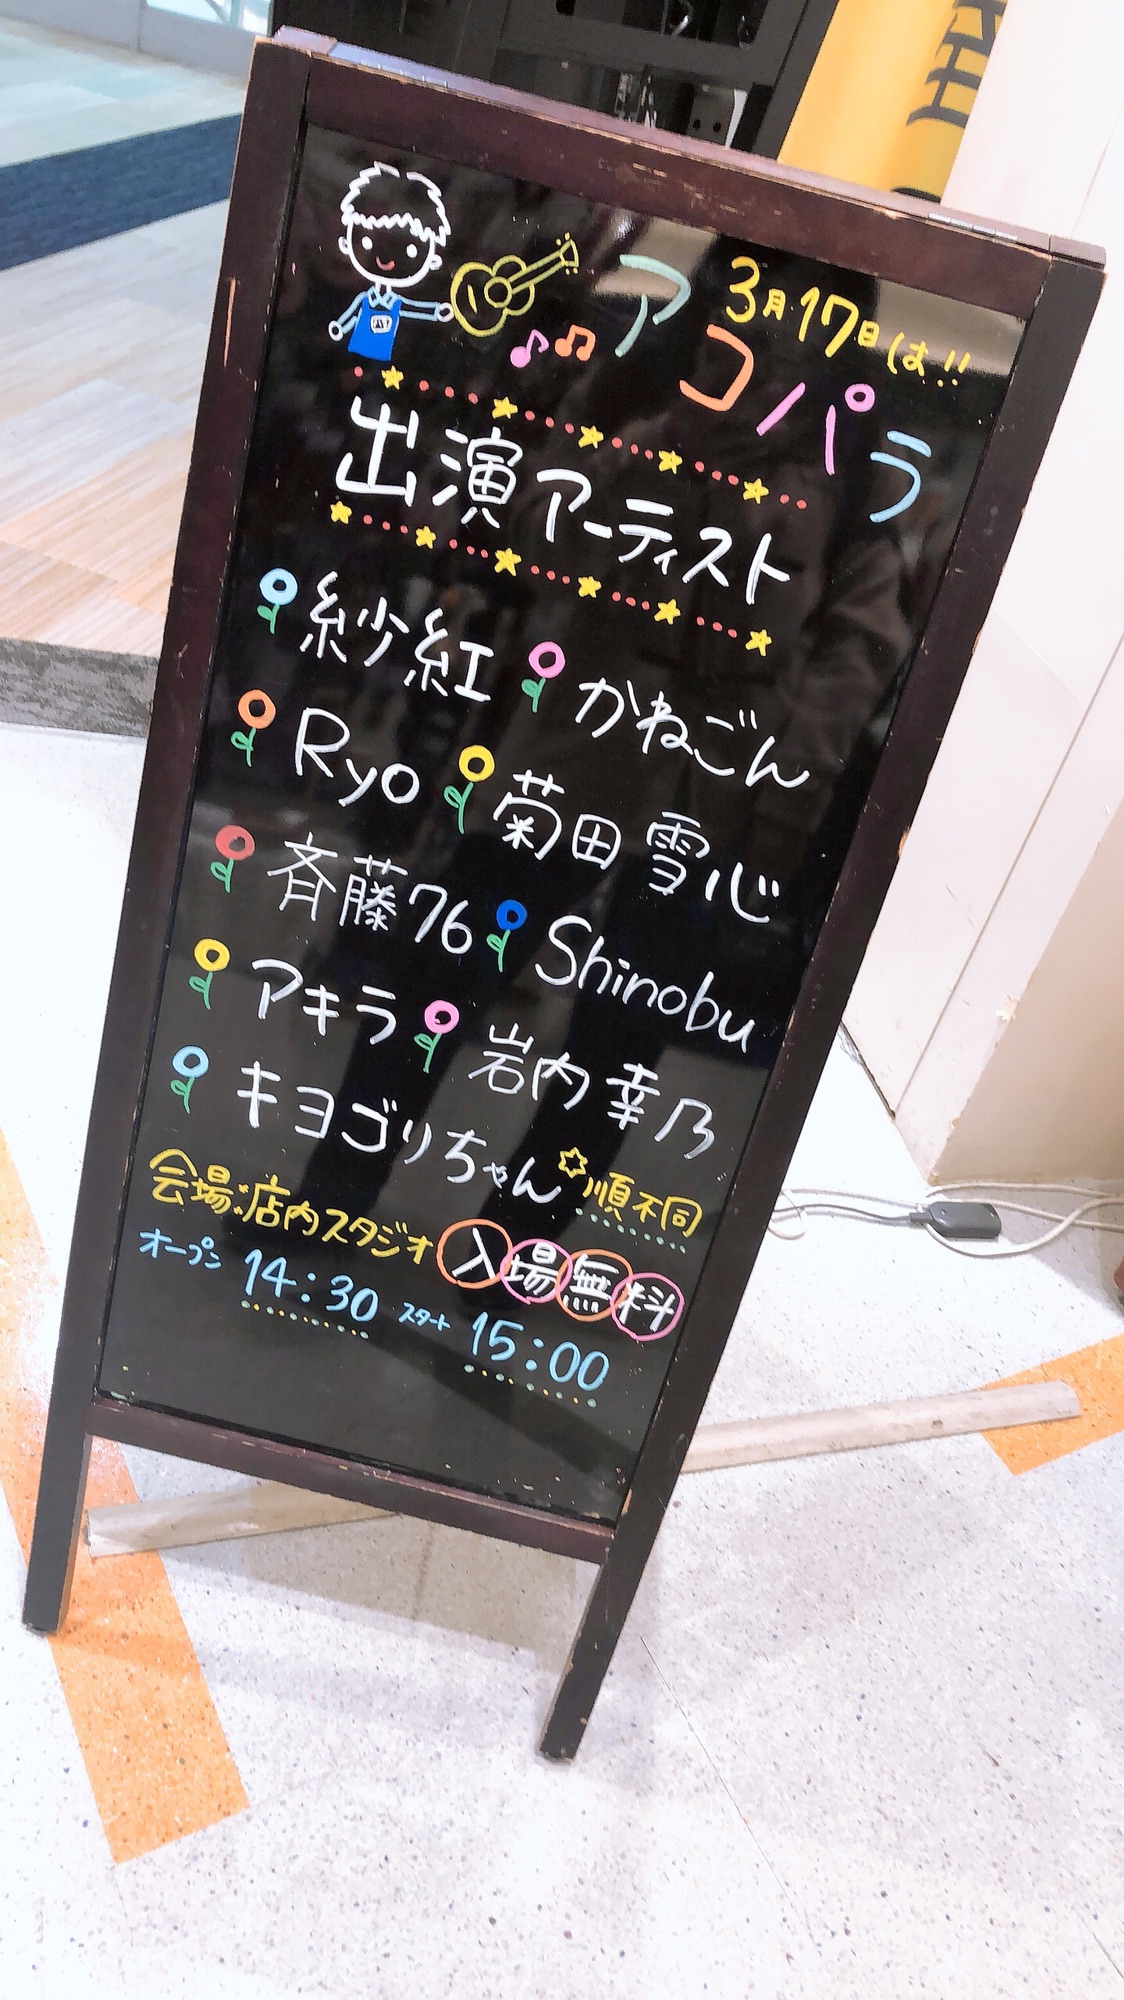 3月17日は!!
アコパラ
出演アーティスト
紗紅 かねごん
Ryo 菊田 雪心
斉藤76 Shinobu
アキラ 岩内 幸乃
キヨゴリちゃん 順不同
会場:店内スタジオ 入場無料
オープン 14:30 スタート 15:00